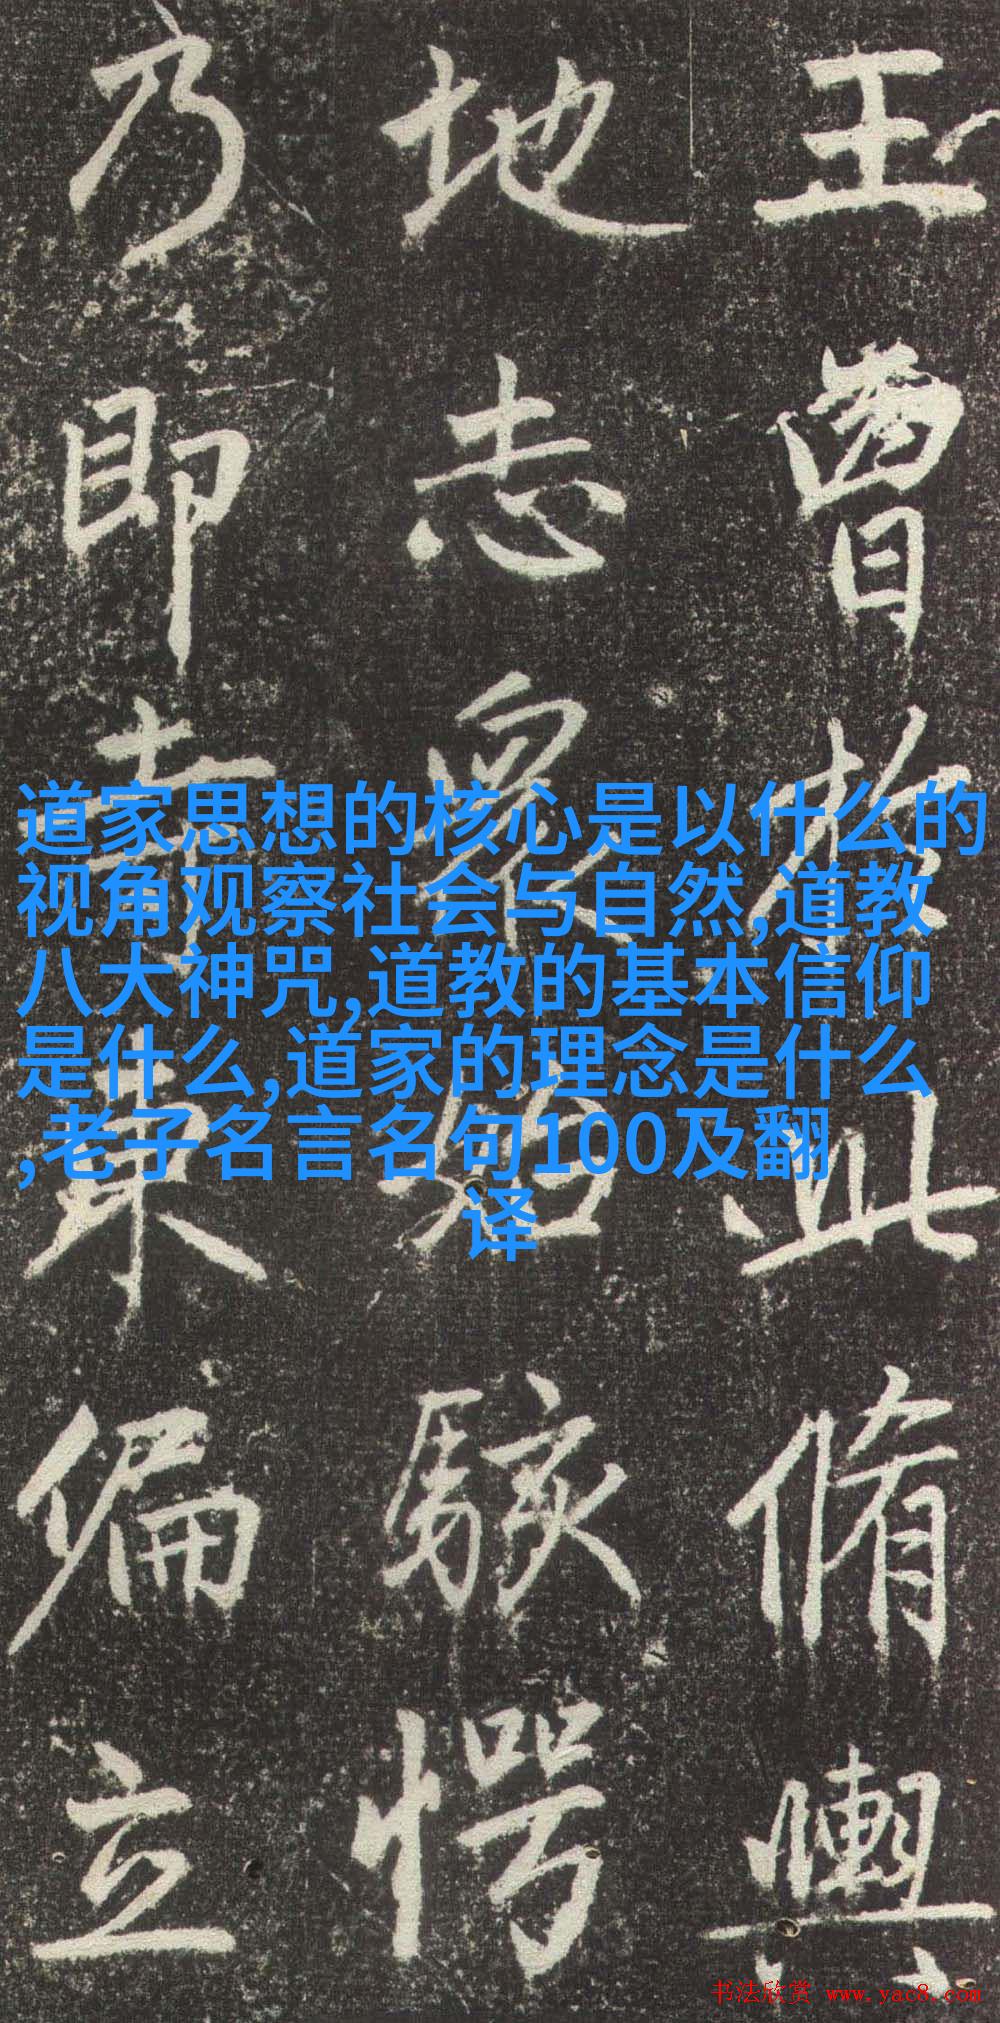 王曾於此脩輿
地志衆始駭愕
乃即寺東偏立
道家思想的核心是以什么的
视角观察社会与自然,道教
八大神咒,道教的基本信仰
是什么,道家的理念是什么
,老子名言名句100及翻
译
书法欣赏 www.yac8.com